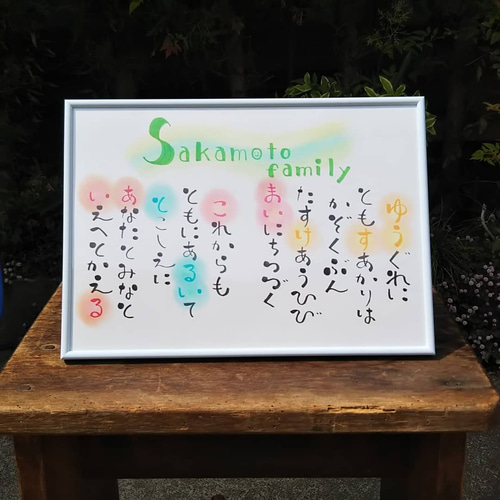 Sakamoto
family
ゆうぐれに
ともすあかりは
かぞくぶん
たすけあうひび
まいにちつづく
これからも
ともにあるいて
とこしえに
あなたとみなと
いえへとかえる